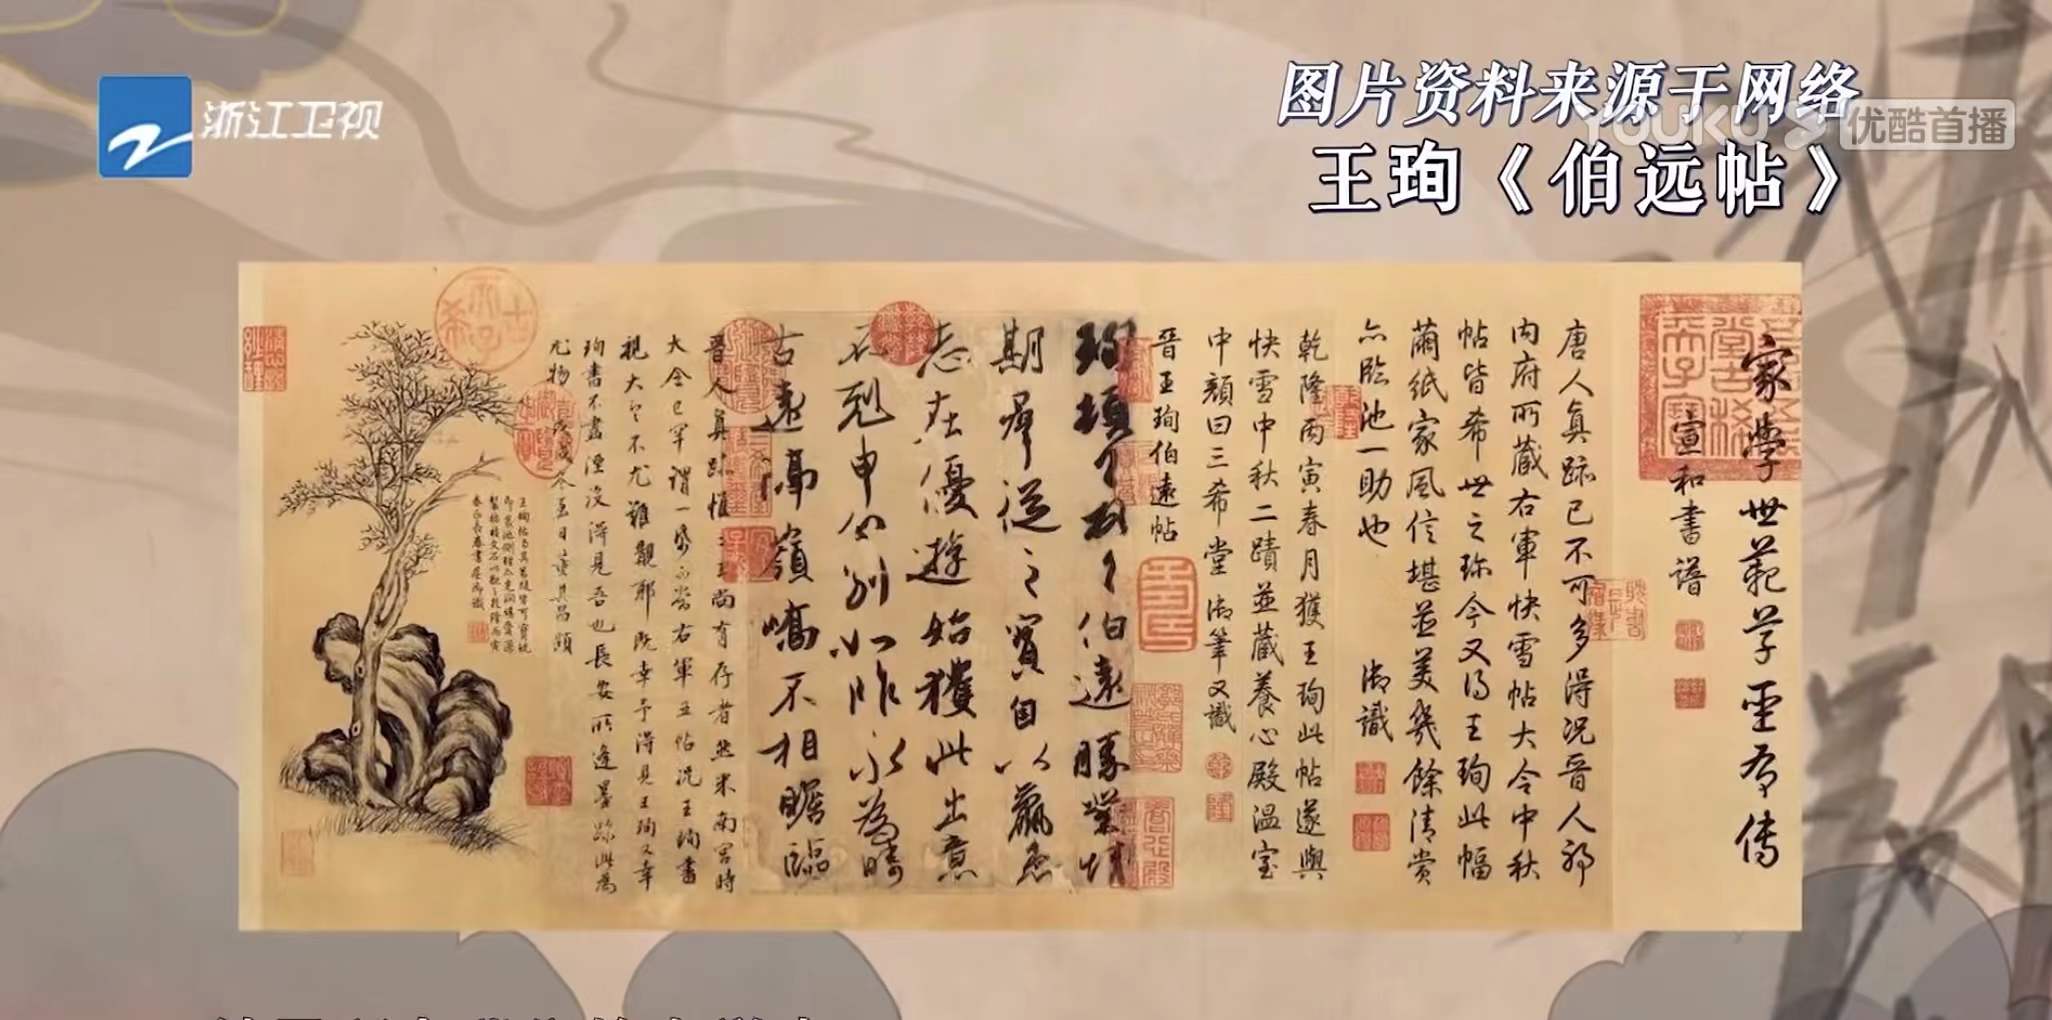 浙江卫视
图片资料来源于网络
YOUKU 优酷首播
王珣《伯远帖》
家学世范草圣有传
宣和書譜
唐人真跡已不可多得况晋人耶
内府所蔵右軍快雪帖大令中秋
帖皆希世之珍今又得王珣此幅
繭紙家風信堪並美幾餘清赏
亦臨池一助也 御識
乾隆丙寅春月獲王珣此帖遂與
快雪中秋二蹟並藏養心殿温室
中顔曰三希堂御筆又識
晋王珣伯遠帖
珣頓首頓首伯遠勝業情
期羣從之寳自以羸患
志在優遊始獲此出意
不剋申分別如昨永為疇
古遠隔嶺嶠不相瞻臨
晋人真跡惟二王尚有存者然米南宫時
大令已罕謂一紙可當右軍五帖况王珣書
視大令不尤難觀耶既幸予得見王珣又幸
珣書不盡湮没得見吾也長安所逢墨跡此為
尤物戊戌冬至日董其昌題